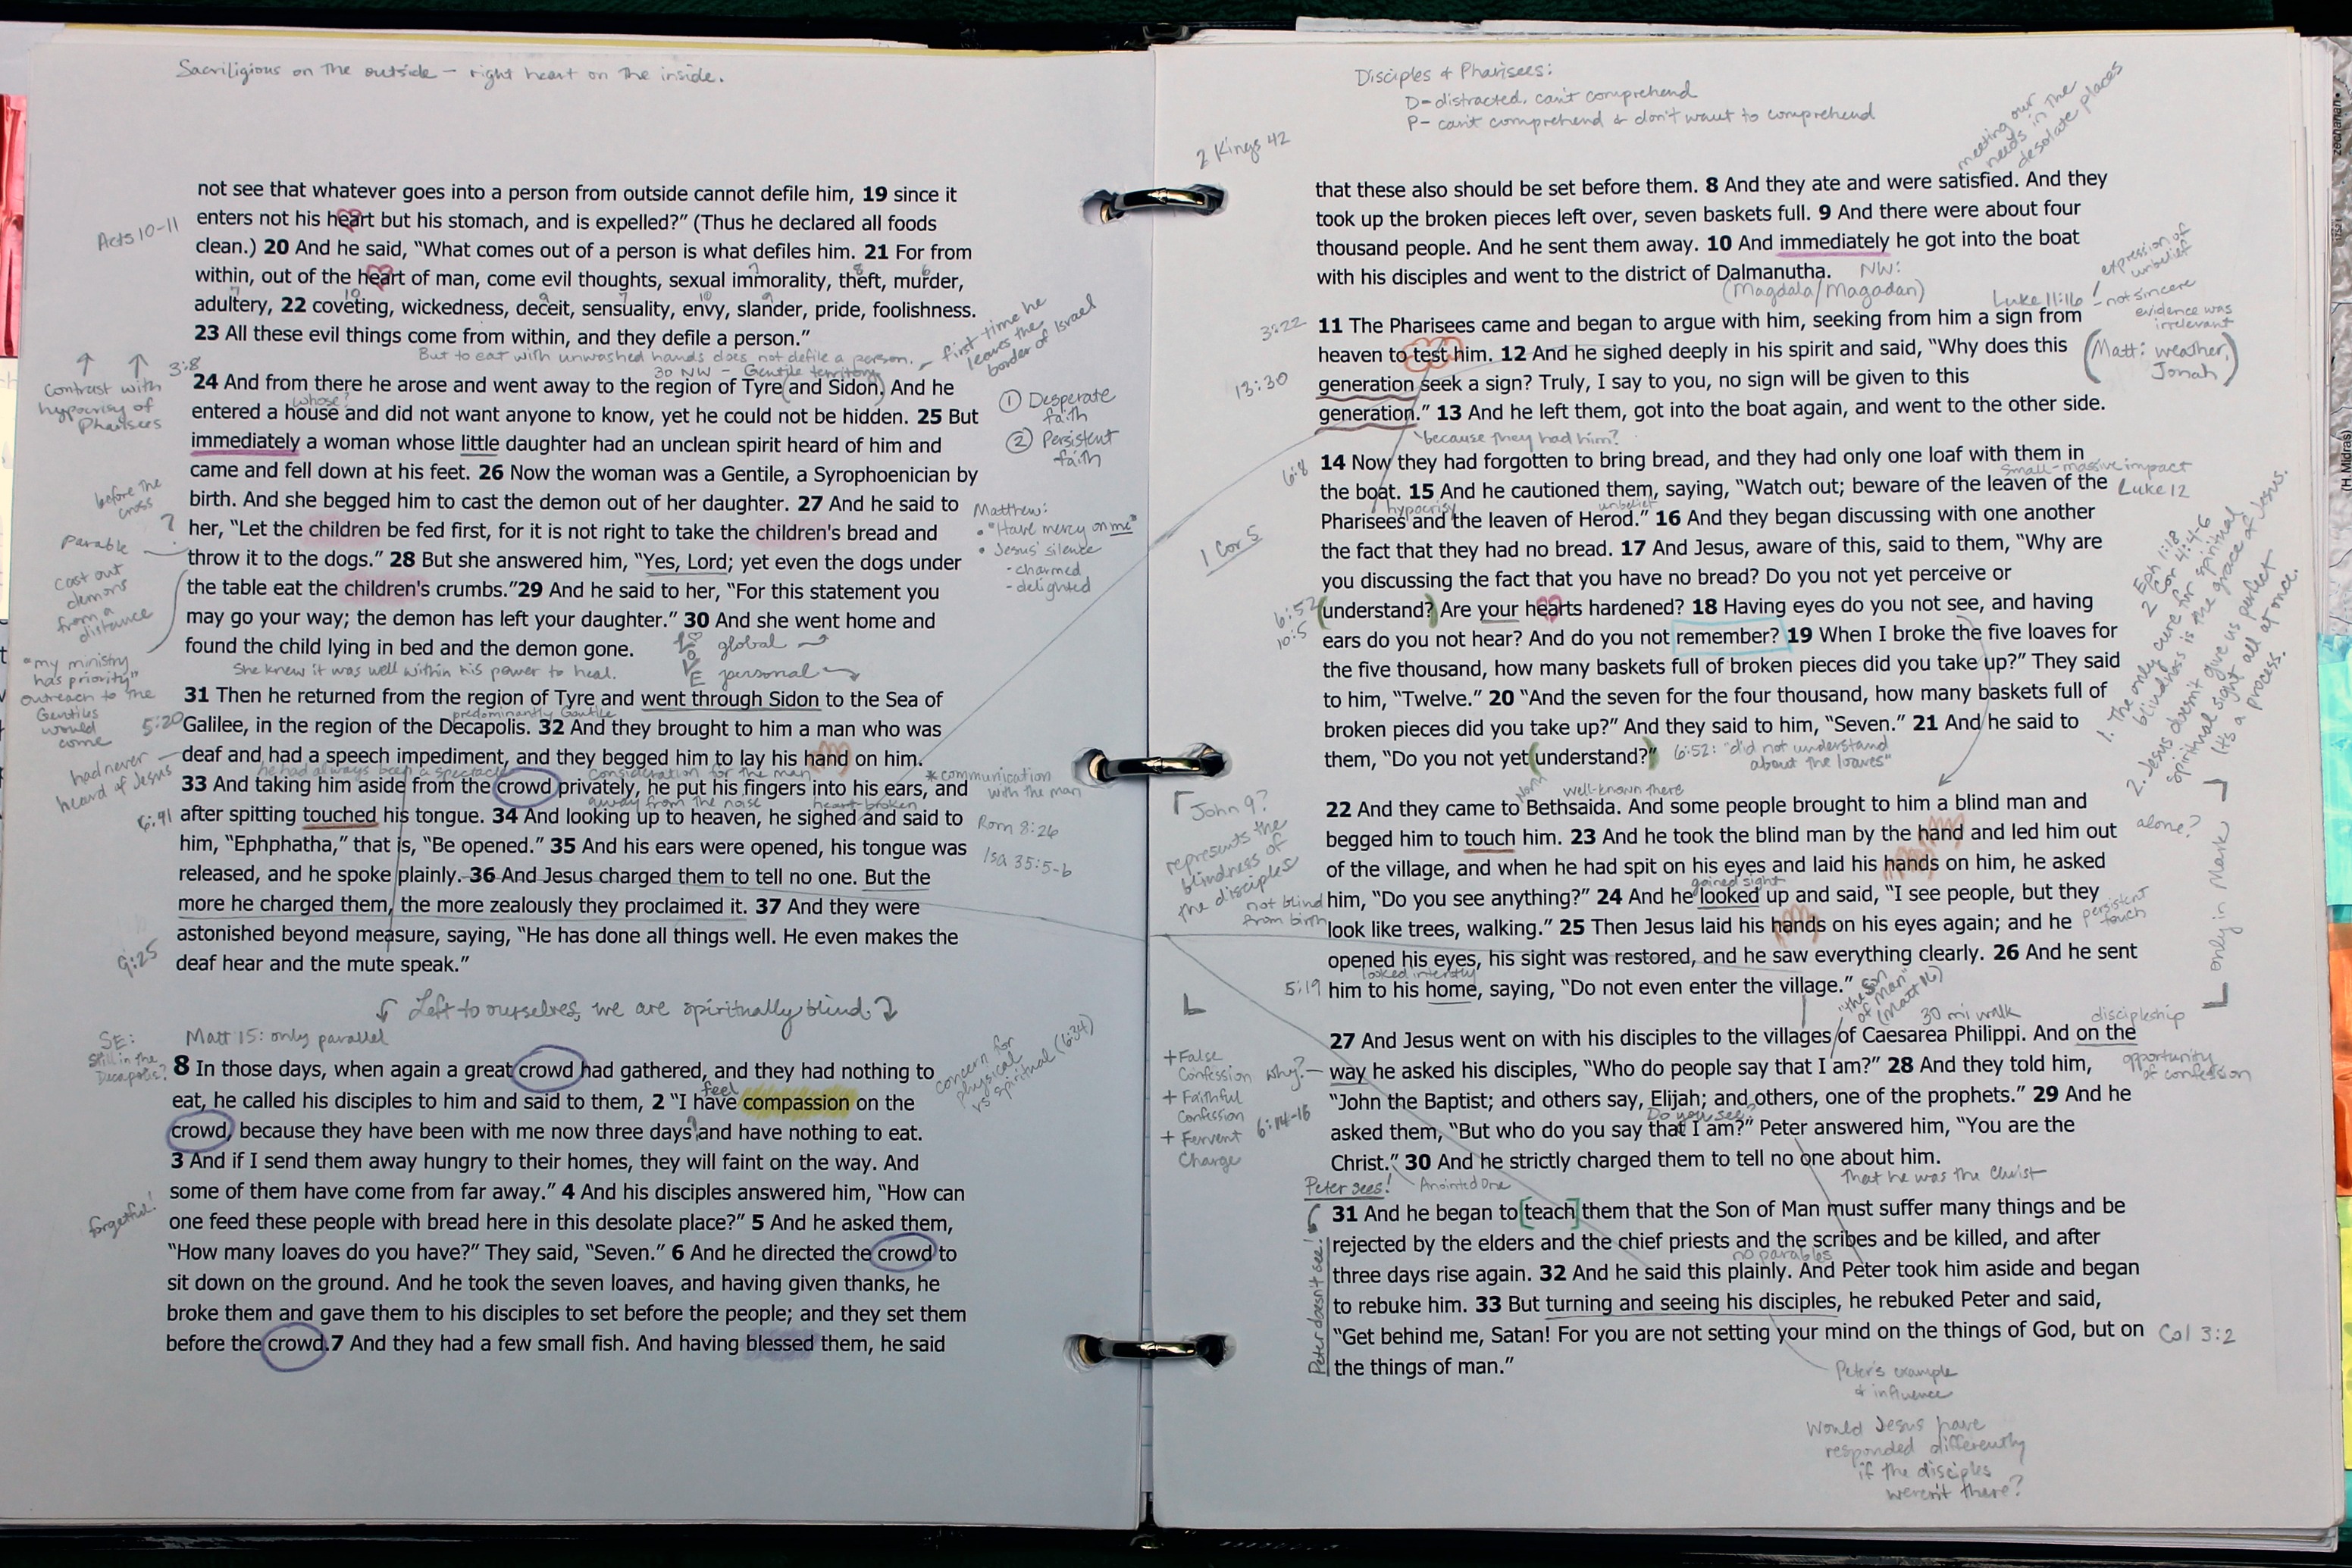 Sacriligious on the outside – right heart on the inside.
not see that whatever goes into a person from outside cannot defile him, 19 since it
enters not his heart but his stomach, and is expelled?” (Thus he declared all foods
Acts 10-11
clean.) 20 And he said, “What comes out of a person is what defiles him. 21 For from
within, out of the heart of man, come evil thoughts, sexual immorality, theft, murder,
adultery, 22 coveting, wickedness, deceit, sensuality, envy, slander, pride, foolishness.
23 All these evil things come from within, and they defile a person.”
But to eat with unwashed hands does not defile a person.
first time he
leaves the
border of Israel
Contrast with
hypocrisy of
Pharisees
3:8
30 NW – Gentile territory
24 And from there he arose and went away to the region of Tyre (and Sidon). And he
whose?
entered a house and did not want anyone to know, yet he could not be hidden. 25 But
immediately a woman whose little daughter had an unclean spirit heard of him and
came and fell down at his feet. 26 Now the woman was a Gentile, a Syrophoenician by
birth. And she begged him to cast the demon out of her daughter. 27 And he said to
her, “Let the children be fed first, for it is not right to take the children's bread and
throw it to the dogs.” 28 But she answered him, “Yes, Lord; yet even the dogs under
the table eat the children's crumbs.”29 And he said to her, “For this statement you
may go your way; the demon has left your daughter.” 30 And she went home and
found the child lying in bed and the demon gone.
① Desperate
faith
② Persistent
faith
before the
cross
?
Parable
cast out
demons
from a
distance
"my ministry
has priority"
outreach to the
Gentiles
would
come
Matthew:
• "Have mercy on me"
• Jesus' silence
- charmed
- delighted
She knew it was well within his power to heal.
LOVE
global
personal
31 Then he returned from the region of Tyre and went through Sidon to the Sea of
predominantly Gentile
5:20
Galilee, in the region of the Decapolis. 32 And they brought to him a man who was
deaf and had a speech impediment, and they begged him to lay his hand on him.
had never
heard of Jesus
he had always been a spectacle
consideration for the man
33 And taking him aside from the crowd privately, he put his fingers into his ears, and
away from the noise
heart-broken
*communication
with the man
6:41
after spitting touched his tongue. 34 And looking up to heaven, he sighed and said to
Rom 8:26
him, “Ephphatha,” that is, “Be opened.” 35 And his ears were opened, his tongue was
Isa 35:5-6
released, and he spoke plainly. 36 And Jesus charged them to tell no one. But the
more he charged them, the more zealously they proclaimed it. 37 And they were
astonished beyond measure, saying, “He has done all things well. He even makes the
9:25
deaf hear and the mute speak.”
Left to ourselves, we are spiritually blind.
SE:
Still in the
Decapolis?
Matt 15: only parallel
8 In those days, when again a great crowd had gathered, and they had nothing to
feel
eat, he called his disciples to him and said to them, 2 “I have compassion on the
concern for
physical
vs spiritual (6:34)
crowd, because they have been with me now three days and have nothing to eat.
3 And if I send them away hungry to their homes, they will faint on the way. And
some of them have come from far away.” 4 And his disciples answered him, “How can
forgetful!
one feed these people with bread here in this desolate place?” 5 And he asked them,
“How many loaves do you have?” They said, “Seven.” 6 And he directed the crowd to
sit down on the ground. And he took the seven loaves, and having given thanks, he
broke them and gave them to his disciples to set before the people; and they set them
before the crowd.7 And they had a few small fish. And having blessed them, he said
Disciples & Pharisees:
D– distracted, can't comprehend
P– can't comprehend & don't want to comprehend
2 Kings 42
meeting our
needs in the
desolate places
that these also should be set before them. 8 And they ate and were satisfied. And they
took up the broken pieces left over, seven baskets full. 9 And there were about four
thousand people. And he sent them away. 10 And immediately he got into the boat
with his disciples and went to the district of Dalmanutha.
NW:
(Magdala/Magadan)
expression of
unbelief
Luke 11:16
– not sincere
evidence was
irrelevant
3:22
11 The Pharisees came and began to argue with him, seeking from him a sign from
heaven to test him. 12 And he sighed deeply in his spirit and said, “Why does this
(Matt: weather,
Jonah)
13:30
generation seek a sign? Truly, I say to you, no sign will be given to this
generation.” 13 And he left them, got into the boat again, and went to the other side.
because they had him?
6:8
14 Now they had forgotten to bring bread, and they had only one loaf with them in
small-massive impact
the boat. 15 And he cautioned them, saying, “Watch out; beware of the leaven of the
Luke 12
hypocrisy
unbelief
Pharisees and the leaven of Herod.” 16 And they began discussing with one another
1 Cor 5
the fact that they had no bread. 17 And Jesus, aware of this, said to them, “Why are
you discussing the fact that you have no bread? Do you not yet perceive or
6:52
understand? Are your hearts hardened? 18 Having eyes do you not see, and having
10:5
ears do you not hear? And do you not remember? 19 When I broke the five loaves for
the five thousand, how many baskets full of broken pieces did you take up?” They said
to him, “Twelve.” 20 “And the seven for the four thousand, how many baskets full of
broken pieces did you take up?” And they said to him, “Seven.” 21 And he said to
them, “Do you not yet (understand?”)
6:52: "did not understand
about the loaves"
Eph 1:18
2 Cor 4:4-6
1. The only cure for spiritual
blindness is the grace of Jesus.
2. Jesus doesn't give us perfect
spiritual sight all at once.
(It's a process.
North
well-known there
22 And they came to Bethsaida. And some people brought to him a blind man and
begged him to touch him. 23 And he took the blind man by the hand and led him out
alone?
of the village, and when he had spit on his eyes and laid his hands on him, he asked
gained sight
him, “Do you see anything?” 24 And he looked up and said, “I see people, but they
look like trees, walking.” 25 Then Jesus laid his hands on his eyes again; and he
persistent
touch
opened his eyes, his sight was restored, and he saw everything clearly. 26 And he sent
looked intently
5:19
him to his home, saying, “Do not even enter the village.”
John 9?
represents the
blindness of
the disciples
not blind
from birth
only in Mark
"the Son
of Man"
(Matt 16)
30 mi walk
discipleship
27 And Jesus went on with his disciples to the villages of Caesarea Philippi. And on the
why?
way he asked his disciples, “Who do people say that I am?” 28 And they told him,
opportunity
of confession
“John the Baptist; and others say, Elijah; and others, one of the prophets.” 29 And he
Do you see?
asked them, “But who do you say that I am?” Peter answered him, “You are the
Christ.” 30 And he strictly charged them to tell no one about him.
Anointed One
that he was the Christ
+ False
Confession
+ Faithful
Confession
+ Fervent
Charge
6:14-16
Peter sees!
Peter doesn't see!
31 And he began to [teach] them that the Son of Man must suffer many things and be
rejected by the elders and the chief priests and the scribes and be killed, and after
no parables
three days rise again. 32 And he said this plainly. And Peter took him aside and began
to rebuke him. 33 But turning and seeing his disciples, he rebuked Peter and said,
“Get behind me, Satan! For you are not setting your mind on the things of God, but on
Col 3:2
the things of man.”
Peter's example
& influence
Would Jesus have
responded differently
if the disciples
weren't there?